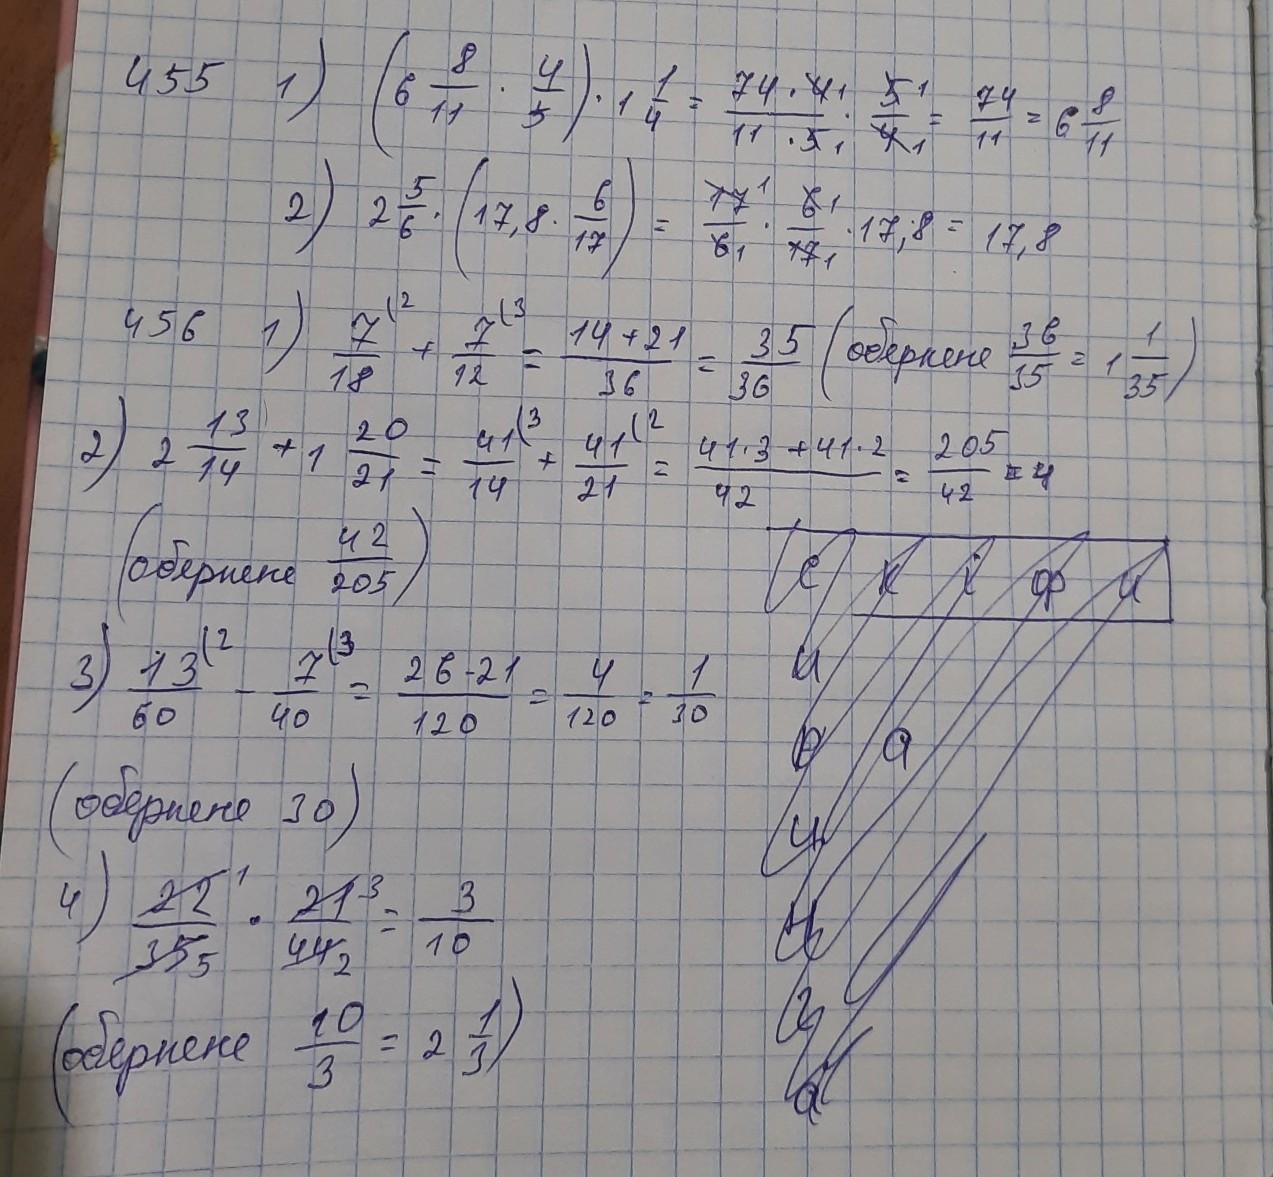 455 1) (6 8/11 · 4/5) · 1 1/4 = 74·4/11·5 · 5/4 = 74/11 = 6 8/11
2) 2 5/6 · (17,8 · 6/17) = 17/6 · 6/17 · 17,8 = 17,8
456 1) 7/18 (2 + 7/12 (3 = 14+21/36 = 35/36 (обернене 36/35 = 1 1/35)
2) 2 13/14 + 1 20/21 = 41/14 (3 + 41/21 (2 = 41·3+41·2/42 = 205/42 = 4
(обернене 42/205)
3) 13/60 (2 - 7/40 (3 = 26-21/120 = 4/120 = 1/30
(обернене 30)
4) 22/35 · 21/44 = 3/10
(обернене 10/3 = 2 1/3)